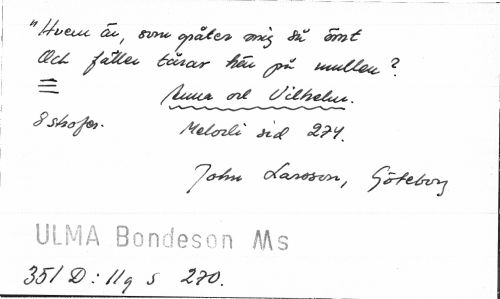 "Hvem är, som gråter mig så ömt
Och fäller tårar här på mullen?
Anna och Vilhelm.
8 strofer.
Melodi sid 274.
John Larsson, Göteborg
ULMA Bondeson Ms
351 D: 11q s 270.